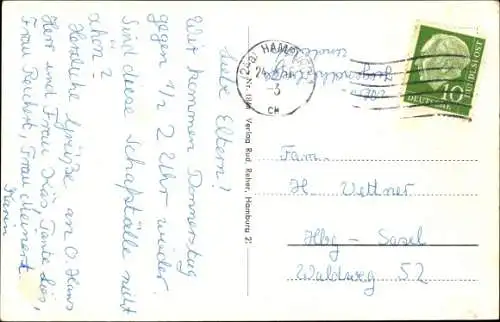 Liebe Eltern!
Wir kommen Donnerstag
gegen 1/2 2 Uhr wieder.
Sind diese Schafställe nicht
schön?
Herzliche Grüße an O. Hans
Herr und Frau Kies, Tante Lies,
Frau Reichert, Frau Meinert.
Karin
Nr. 1841 Verlag Rud. Reher, Hamburg 2
(24a) HAMBURG
24
-8
CH
DEUTSCHE
BUNDESPOST
10
Fam.
H. Vettner
Hbg - Sasel
Waldweg 52